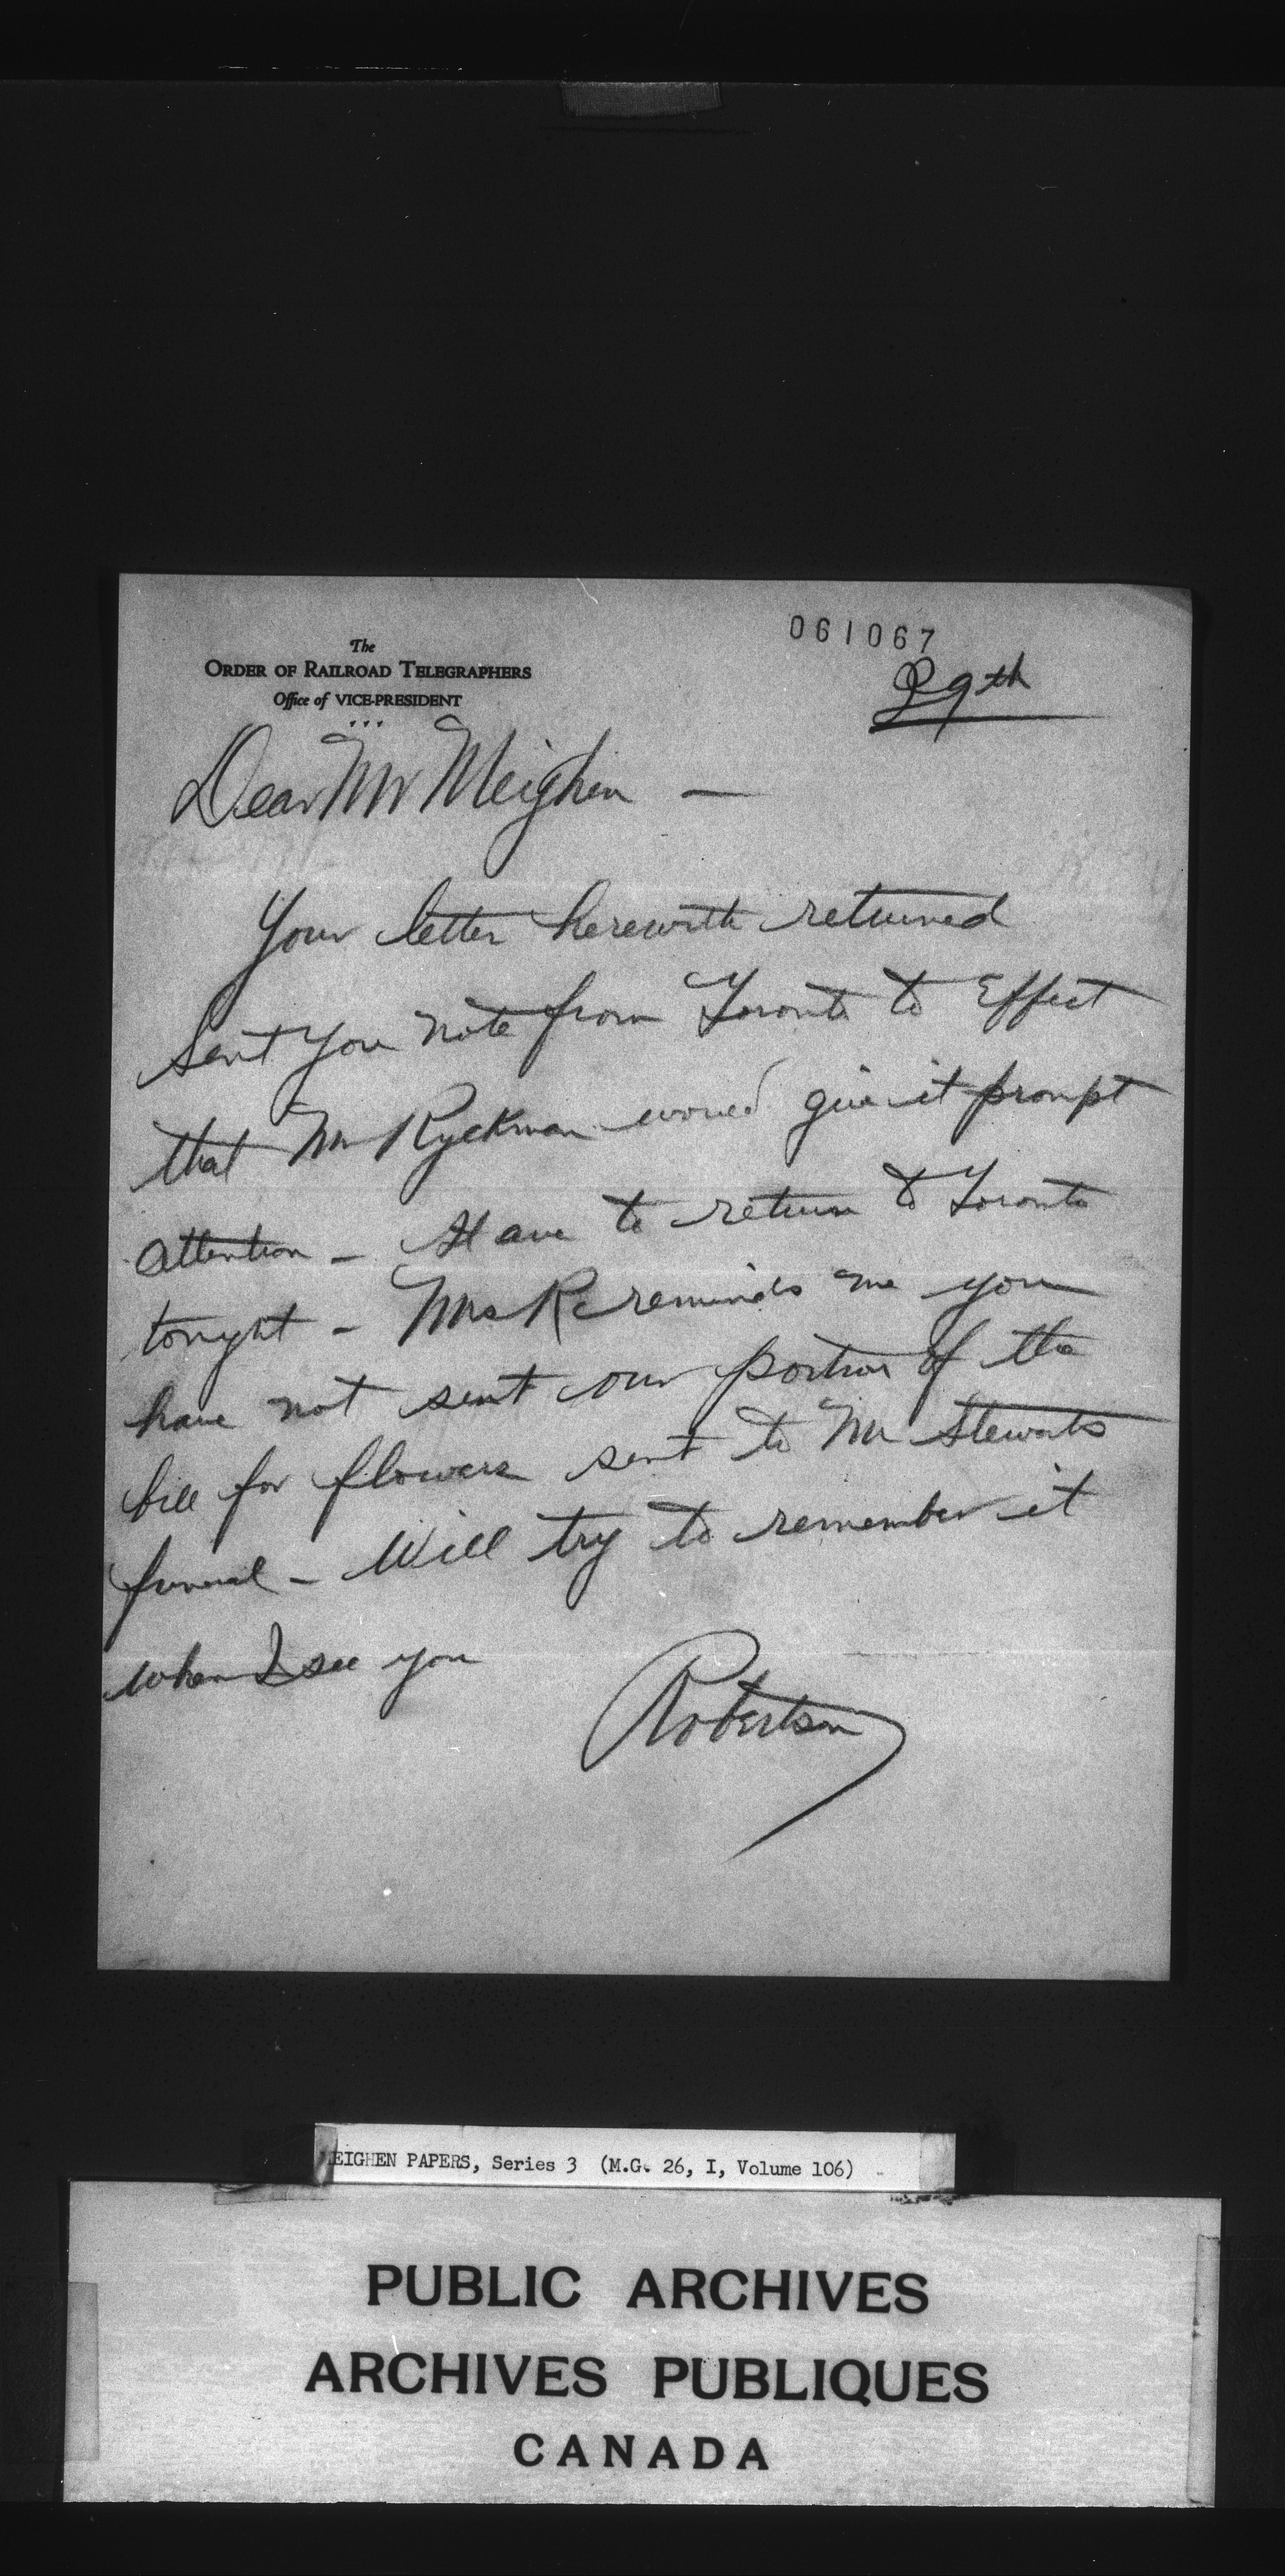 061067
The
ORDER OF RAILROAD TELEGRAPHERS
Office of VICE-PRESIDENT
29th
Dear Mr Meighen —
Your letter herewith returned
Sent you note from Toronto to Effect
that Mr Ryckman would give it prompt
attention — Have to return to Toronto
tonight — Mrs R reminds me you
have not sent our portion of the
bill for flowers sent to Mr Stewarts
funeral — Will try to remember it
when I see you
Robertson
EIGHEN PAPERS, Series 3 (M.G. 26, I, Volume 106)
PUBLIC ARCHIVES
ARCHIVES PUBLIQUES
CANADA